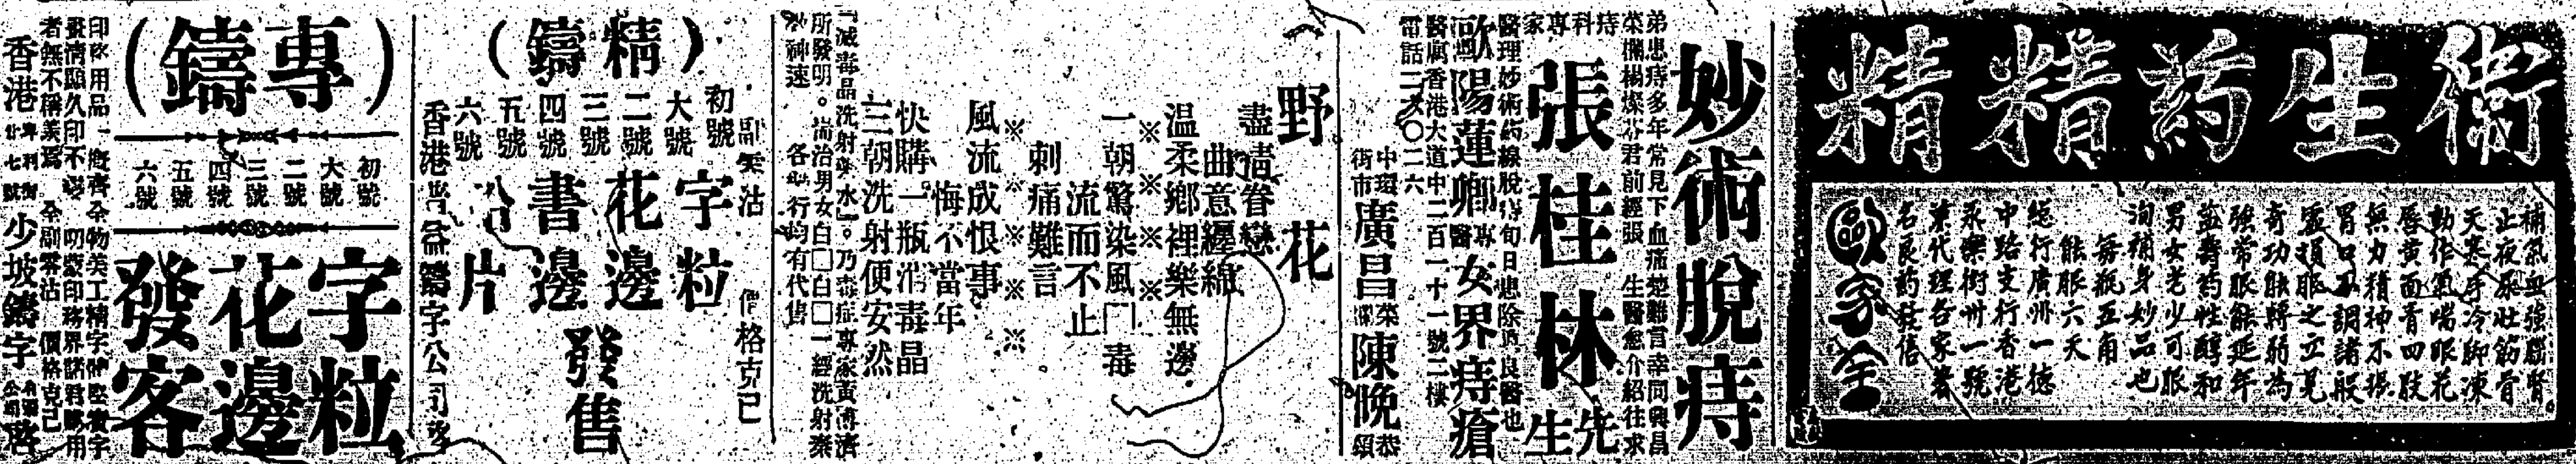 衛生葯精精
補氣血強腦腎
止夜尿壯筋骨
天寒手冷脚凍
動作氣喘眼花
唇黄面青四肢
無力精神不振
胃口不調諸般
靈損服之立見
奇功能轉弱為
強常服能延年
益壽葯性醇和
男女老少可服
洵補身妙品也
每瓶五角
能服六天
總行廣州一德
中路支行香港
永樂街卅一號
葉代理各家著
名良葯駐信
歐家全
妙術脫痔
弟患痔多年常見下血痛楚難言幸同興昌
榮欄楊燦芬君前經張 生醫愈介紹往求
痔科專家
張桂林先生
醫理妙術葯線脫痔旬日悲除眞良醫也
歐陽蓮卿專醫女界痔瘡
醫寓香港大道中二百一十一號二樓
電話二次〇二六
中環街市廣昌榮欄陳晚恭頌
野花
盡情眷戀
曲意纒綿
温柔鄉裡樂無邊
※ ※ ※ ※
一朝驚染風冂毒
流而不止
刺痛難言
※ ※ ※ ※
風流成恨事
悔不當年
快購一瓶消毒晶
三朝洗射便安然
『滅毒晶洗射藥水』。乃毒症專家黃博濟
所發明。耑治男女白□白□一經洗射藥
效神速 各埠行均有代售
(精鑄)
初號
大號
二號
三號
四號
五號
六號
字粒
花邊
書邊
鉛片
發售
價格克己
香港 鑄字公司啓
(專鑄)
初號
大號
二號
三號
四號
五號
六號
字粒
花邊
發客
印務用品一概齊全物美工精字體堅實字
者無不稱羡焉 價格克己
香港 廿七號 少坡鑄字有限公司啓